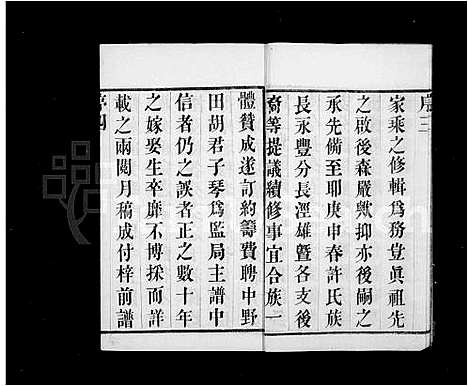 家乘之修輯為務豈眞祖先
之啟後森嚴歟抑亦後嗣之
承先備至耶庚申春許氏族
長永豐分長涇雄暨各支後
裔等提議續修事宜合族一
體贊成遂訂約籌費聘中野
田胡君子琴為監局主譜中
信者仍之誤者正之數十年
之嫁娶生卒靡不博採而詳
載之兩閱月稿成付梓前譜